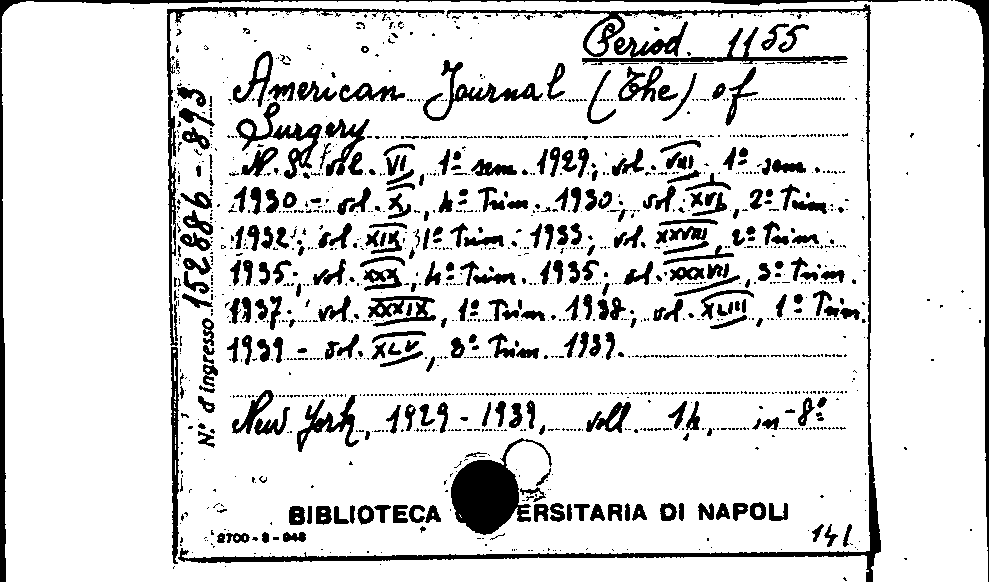 Period. 1155
American Journal (The) of
Surgery
N. S. vol. VI, 1º sem. 1929; vol. VIII, 1º sem.
1930 - vol. X, 4º Trim. 1930; vol. XVI, 2º Trim.
1932; vol. XIX, 1º Trim. 1933; vol. XXVIII, 2º Trim.
1935; vol. XXX, 4º Trim. 1935; vol. XXXVII, 3º Trim.
1937; vol. XXXIX, 1º Trim. 1938; vol. XLIII, 1º Trim.
1939 - vol. XLV, 3º Trim. 1939.
New York, 1929 - 1939, voll. 14, in-8º
N.º d'ingresso 152886 - 893
BIBLIOTECA ERSITARIA DI NAPOLI
2700 - 8 - 948
141